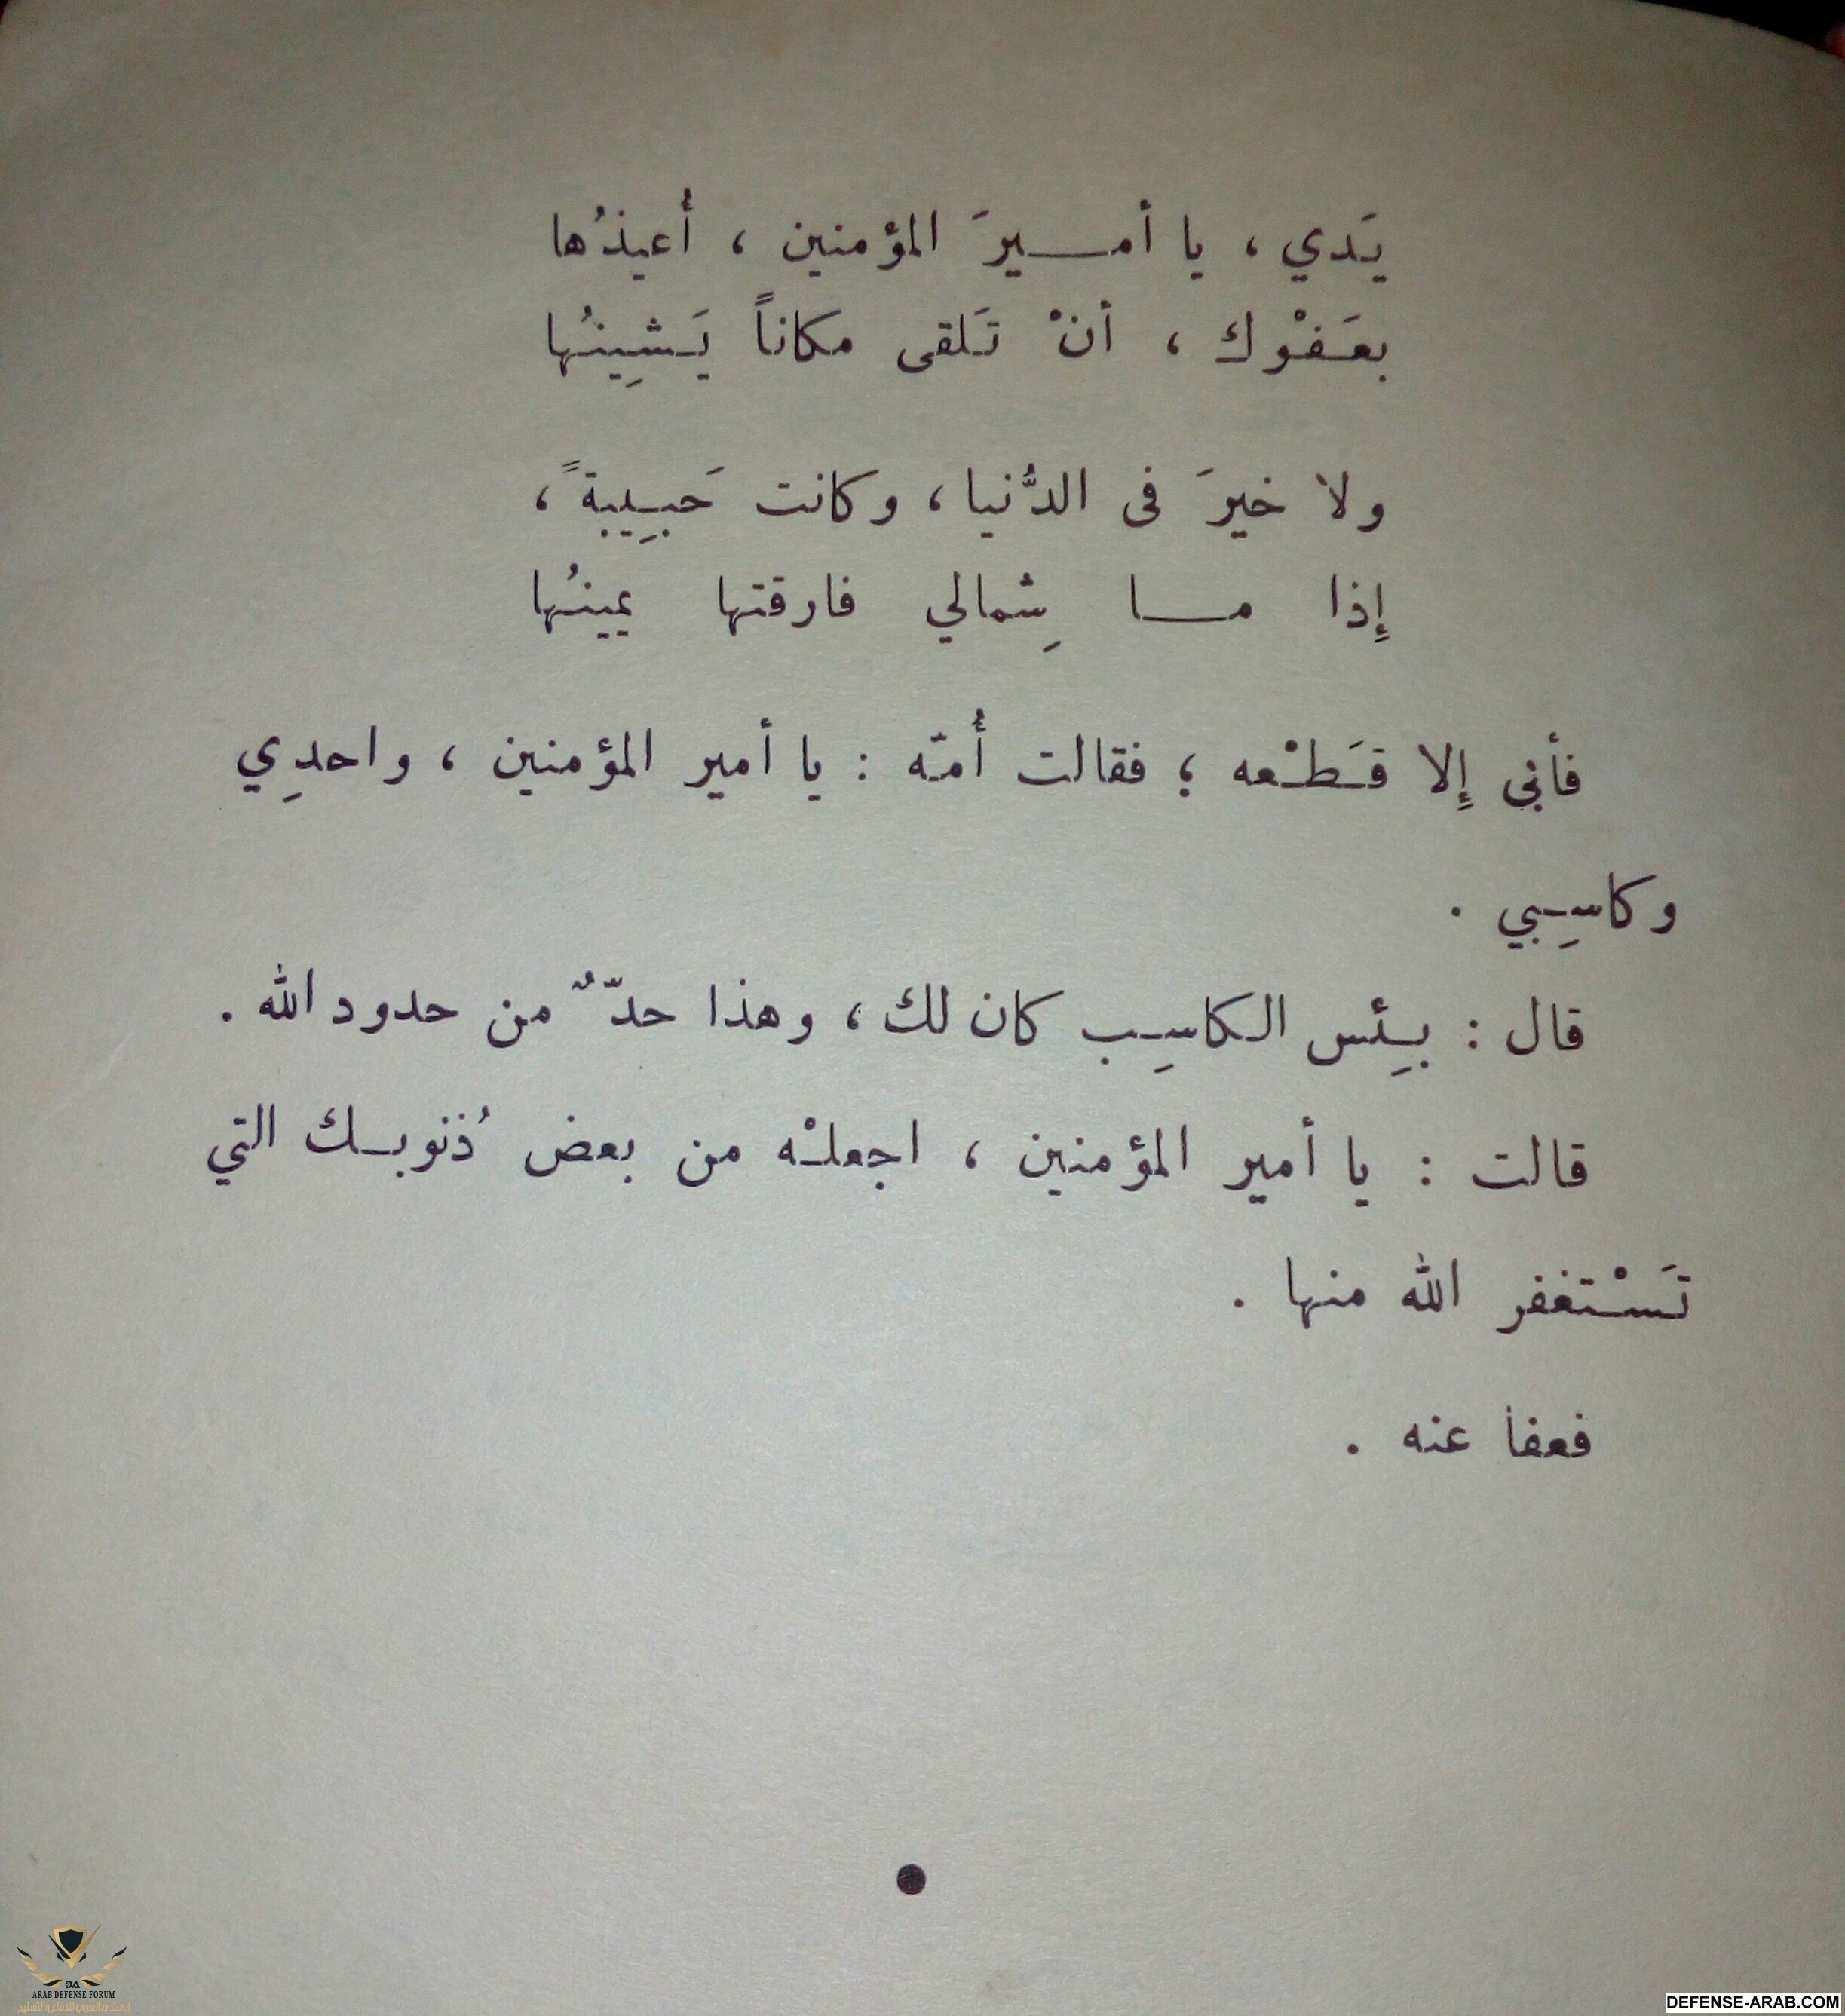 يَدي ، يا أمـــيرَ المؤمنين ، أُعيذُها
بعَـفْوك ، أنْ تَـلقى مكاناً يَـشِينُـها
ولا خيرَ فى الدُّنيا ، وكانت حَبـِيبةً ،
إِذا مـــا شِمالي فارقتها يمينُـها
فأبى إِلا قَـطْـعه ؛ فقالت أُمّه : يا أمير المؤمنين ، واحدِي
وكاسِـبي .
قال : بـِئس الـكاسِـب كان لك ، وهذا حدٌّ من حدود الله .
قالت : يا أمير المؤمنين ، اجعلـْه من بعض ذُنوبـك التي
تَـسْـتغفر الله منها .
فعفا عنه .
DA
ARAB DEFENSE FORUM
المنتدى العربي للدفاع والتسليح
DEFENSE-ARAB.COM